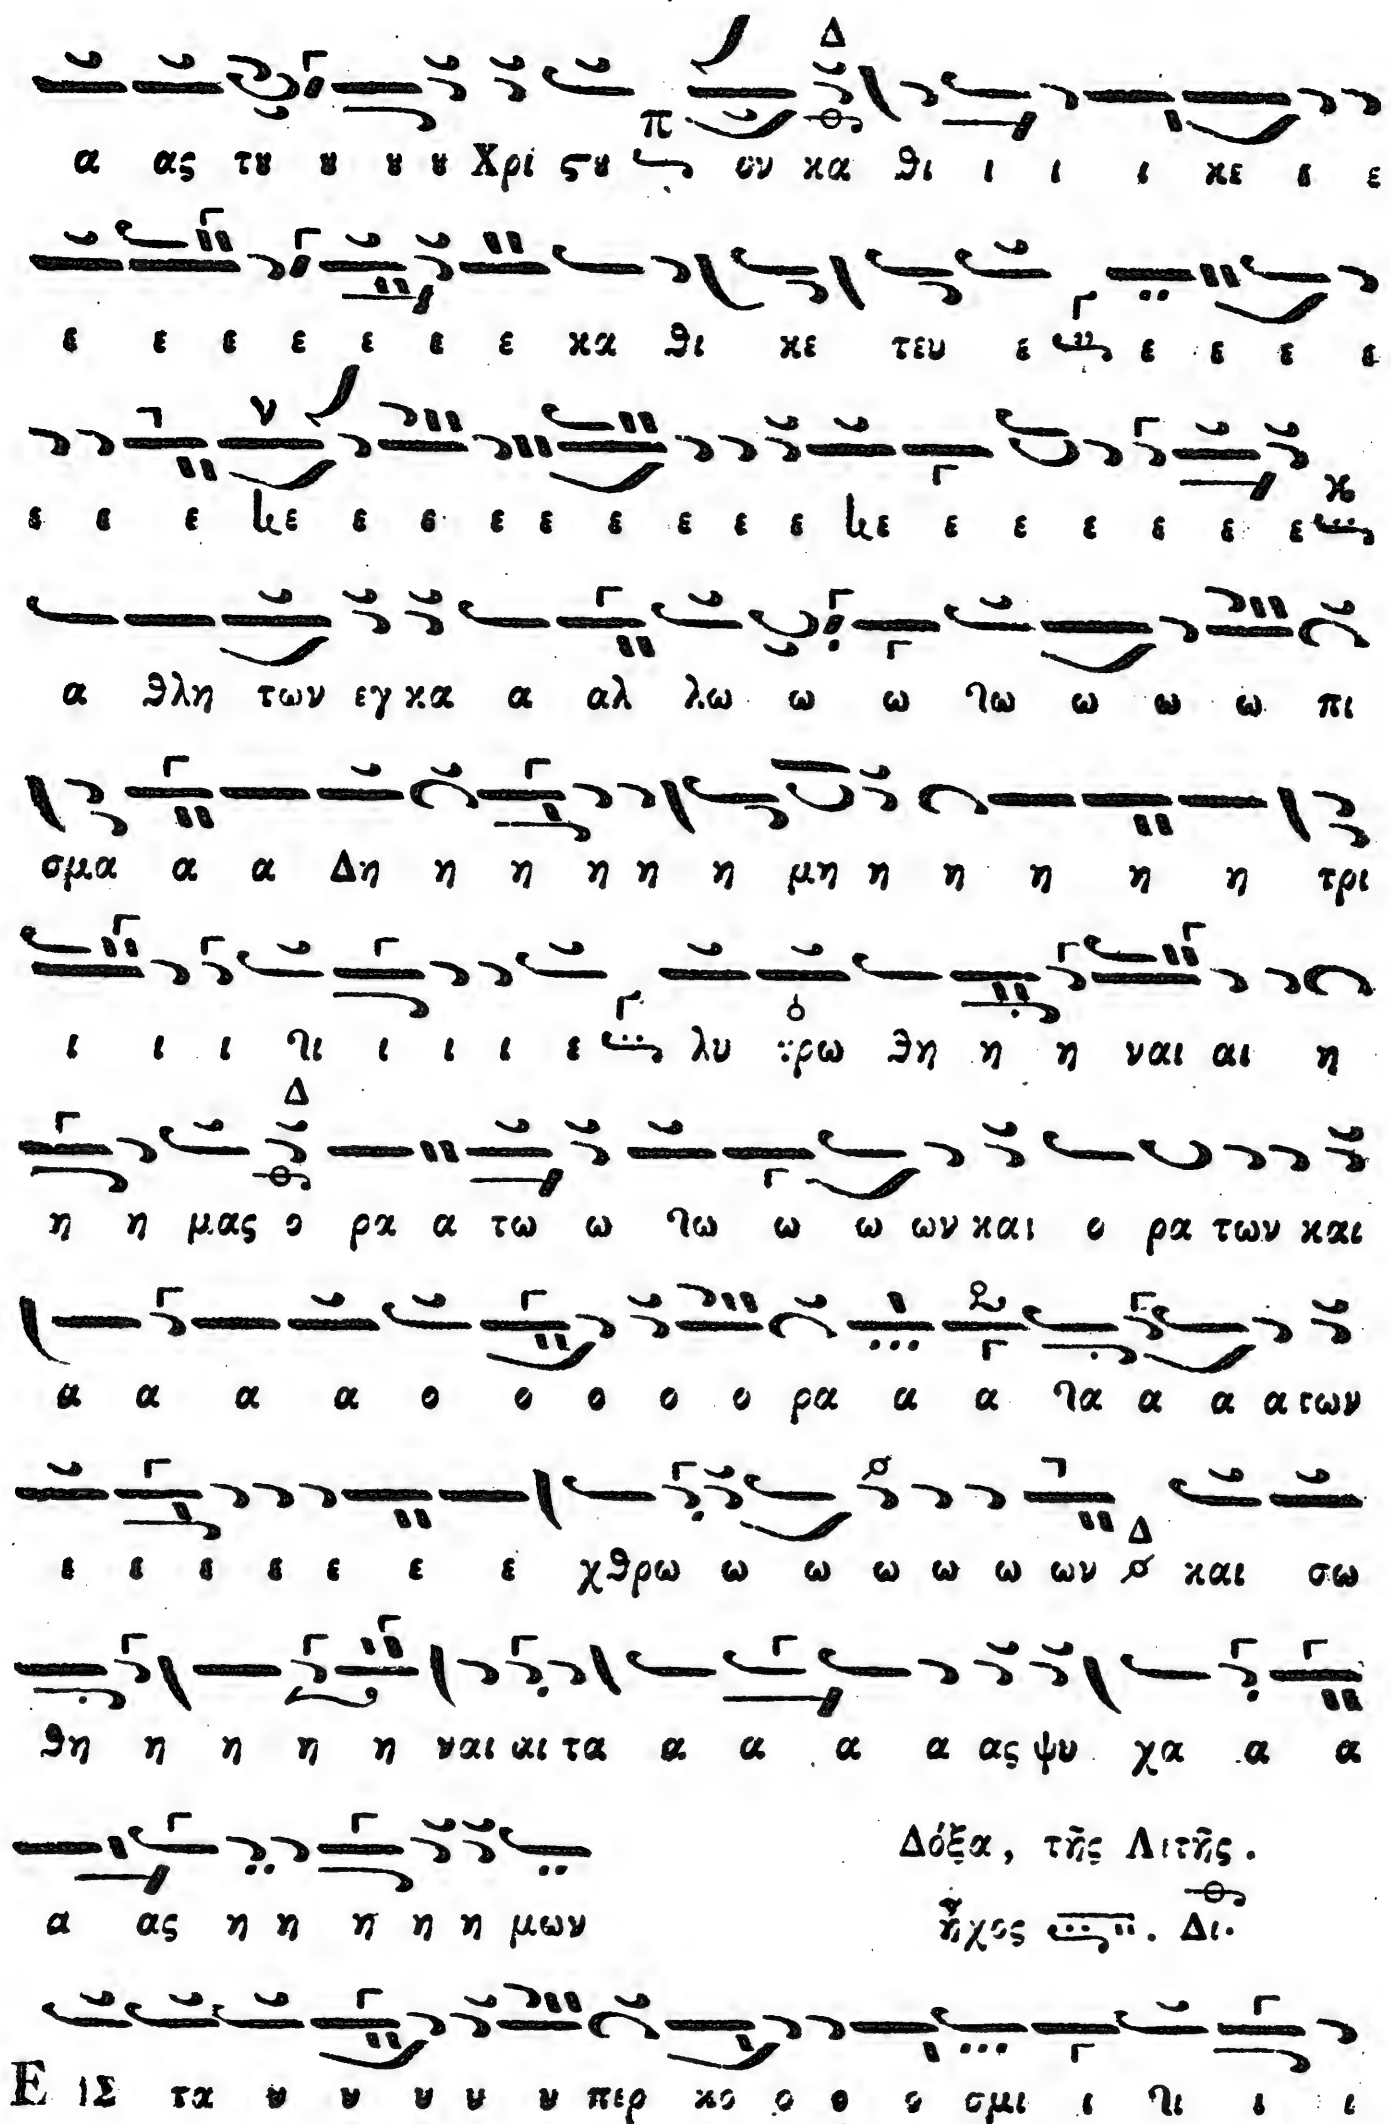 α ας τȣ ȣ ȣ ȣ Χρί ϛȣ ον κα θι ι ι ι κε ε ε
ε ε ε ε ε ε ε κα θι κε τευ ε ε ε ε ε
ε ε ε ε ε ε ε ε ε ε ε ε ε ε ε ε ε
α θλη των εγ κα α αλ λω ω ω ω ω ω πι
σμα α α Δη η η η η η μη η η η η η τρι
ι ι ι ι ι ι ι ε λυ τρω θη η η ναι αι η
η η μας ο ρα α τω ω ω ω ων και ο ρα των και
α α α α ο ο ο ο ο ρα α α α α α των
ε ε ε ε ε ε ε χθρω ω ω ω ω ω ων Δ και σω
θη η η η η ναι αι τα α α α α ας ψυ χα α α
α ας η η η η η μων
Δόξα, τῆς Λιτῆς.
ἦχος . Δι.
Ε ΙΣ τα ȣ ȣ ȣ ȣ ȣ περ κο ο ο ο σμι ι ι ι ι